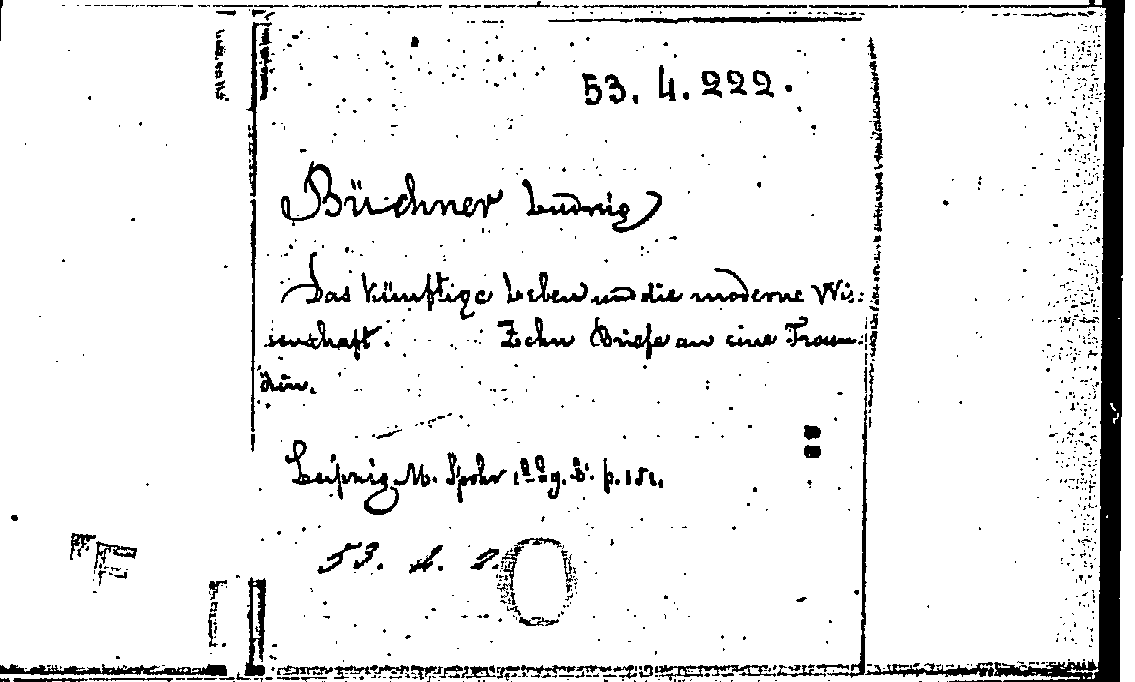 53. 4. 222.
Büchner Ludwig
Das künftige Leben und die moderne Wis:
senschaft. Zehn Briefe an eine Freun:
din.
Leipzig M. Spohr 8° p. 151.
53. 4. 2.
F